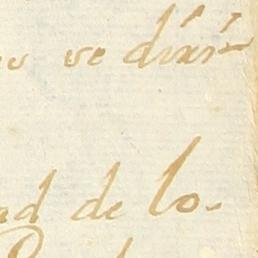 se diri-
ad de lo-